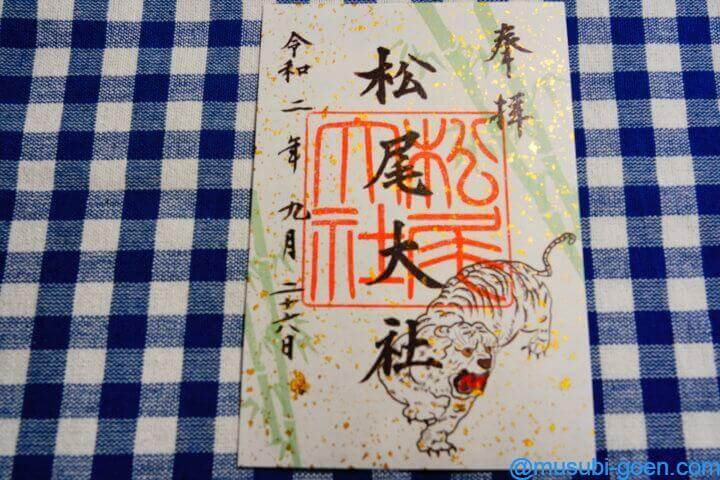 奉拝
松尾大社
松尾大社
令和二年九月二十六日
@musubi-goen.com